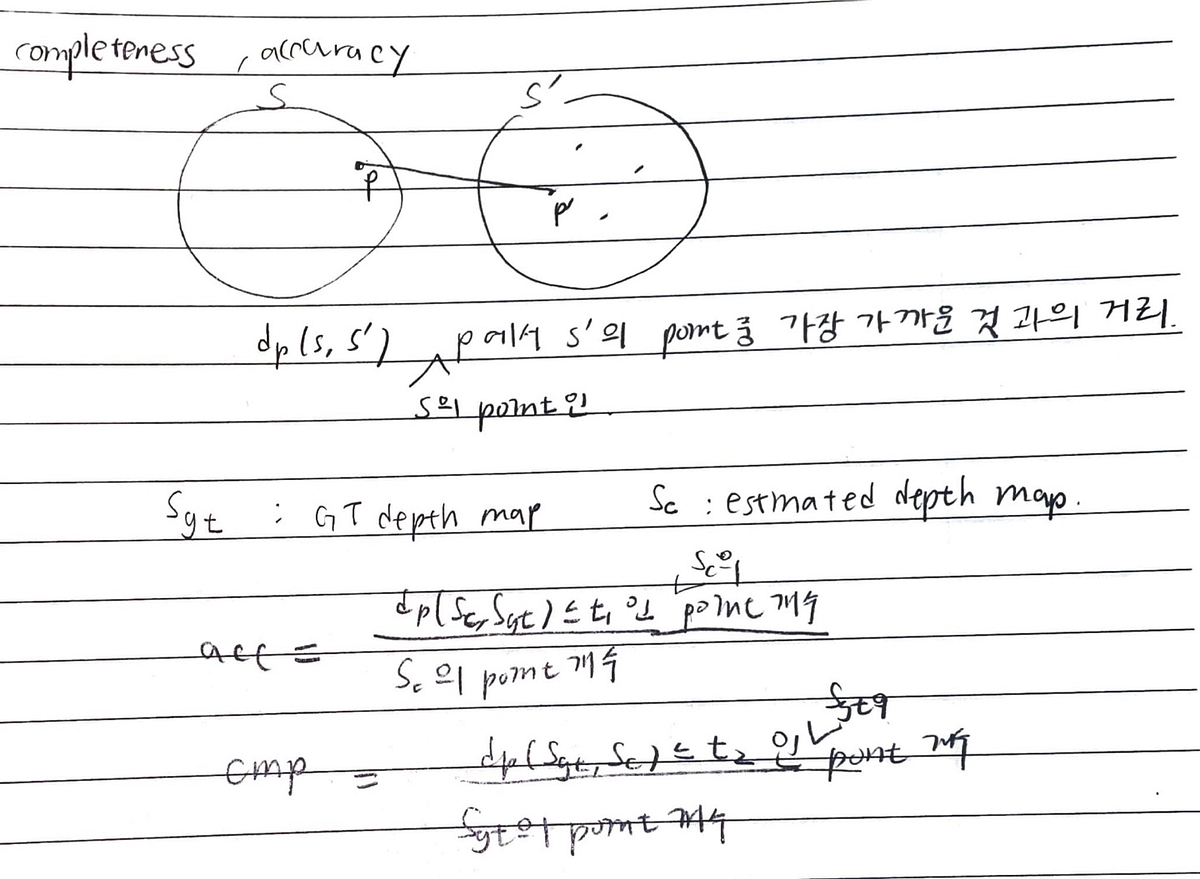 completeness , accuracy
S S′
p p′
dp(s, s′) p에서 s′의 point중 가장 가까운 것 과의 거리.
S의 point인
Sgt : GT depth map Sc : estmated depth map.
Sc의
dp(Sc, Sgt) ≤ t1 인 point 개수
acc =
Sc의 point 개수
Sgt의
dp(Sgt, Sc) ≤ t2 인 pont 개수
cmp =
Sgt의 point 개수